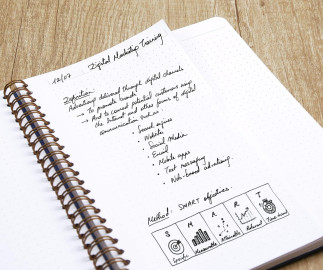 12/07 Digital Marketing Training
Definition:
Advertising delivered through digital channels
→ To promote brands
→ And to connect potential customers using
the Internet and other forms of digital
communication such as:
• Search engines
• Website
• Social Media
• Email
• Mobile apps
• Text messaging
• Web-based advertising.
Method: SMART objectives.
S M A R T
Specific Measurable Attainable Relevant Time-based